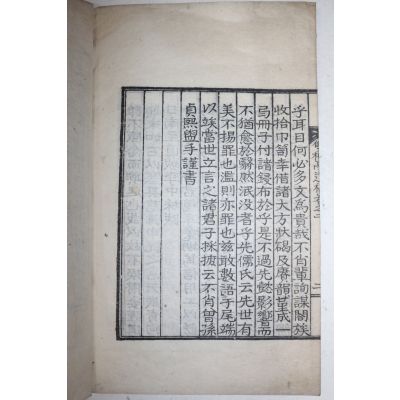 乎耳目何必多文爲貴哉不肖輩詢謀闔族
收拾巾笥幸借諸大方狀碣及賡韻菫成一
局冊子付諸鋟布於乎是不過先懿影響而
不猶愈於黯黙没没者乎先儒氏云先世有
美不揚罪也濫則亦罪也玆敢數語于尾端
以竢當世立言之諸君子採披云不肖曾孫
貞熙盥手謹書